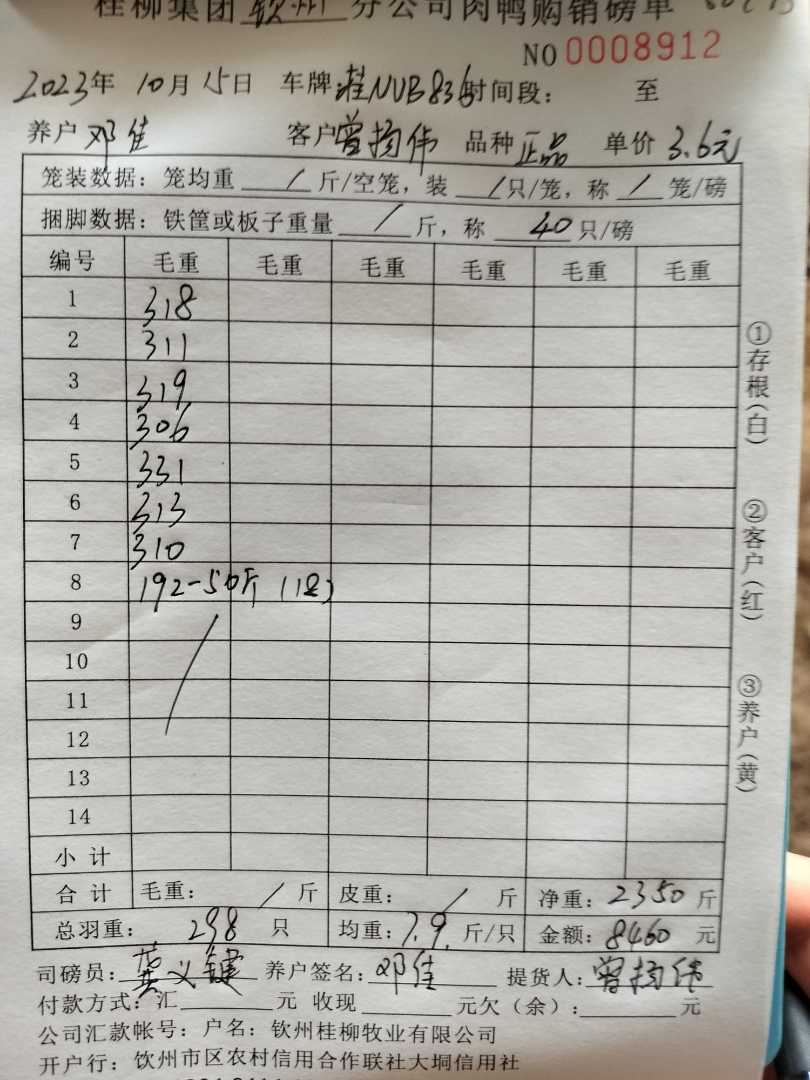 桂柳集团钦州分公司肉鸭购销磅单
NO 0008912
2023年 10月 15日 车牌 桂NVB836 时间段: 至
养户 邓佳 客户 曾扬伟 品种 正品 单价 3.6元
笼装数据: 笼均重 / 斤/空笼, 装 / 只/笼, 称 / 笼/磅
捆脚数据: 铁筐或板子重量 / 斤, 称 40 只/磅
编号 毛重 毛重 毛重 毛重 毛重 毛重
1 318
2 311
3 319
4 306
5 331
6 313
7 310
8 192-50斤
9
10
11
12
13
14
小计
合计 毛重: / 斤 皮重: / 斤 净重: 2350 斤
总羽重: 298 只 均重: 7.9 斤/只 金额: 8460 元
司磅员: 龚义键 养户签名: 邓佳 提货人: 曾扬伟
付款方式: 汇 元 收现 元欠(余): 元
公司汇款帐号: 户名: 钦州桂柳牧业有限公司
开户行: 钦州市区农村信用合作联社大垌信用社
①存根(白)
②客户(红)
③养户(黄)